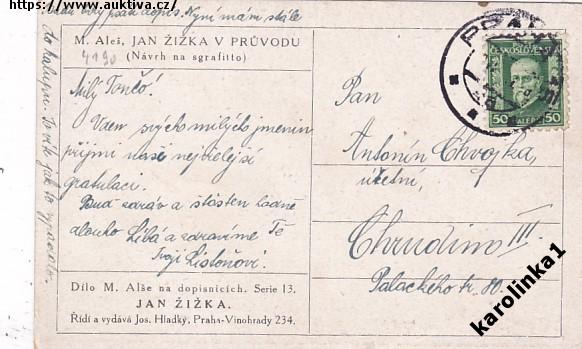 https://www.auktiva.cz/
dopis. Nyní mám stále
M. Aleš, JAN ŽIŽKA V PRŮVODU
4190
(Návrh na sgrafitto)
Milý Tončo!
V den svých milých jmenin
přijmi naše nejvřelejší
gratulaci.
Buď zdráv a šťasten hodně
dlouho Líbá a zdravíme Tě
Tvoji
Dílo M. Alše na dopisnicích. Serie 13.
JAN ŽIŽKA.
Řídí a vydává Jos. Hladký, Praha-Vinohrady 234.
PRAHA
ČESKOSLOVENSKO
50 HALÉŘŮ 50
Pan
Antonín Chvojka,
účetní,
Chrudim III.
Palackého tř. 80.
karolinka1